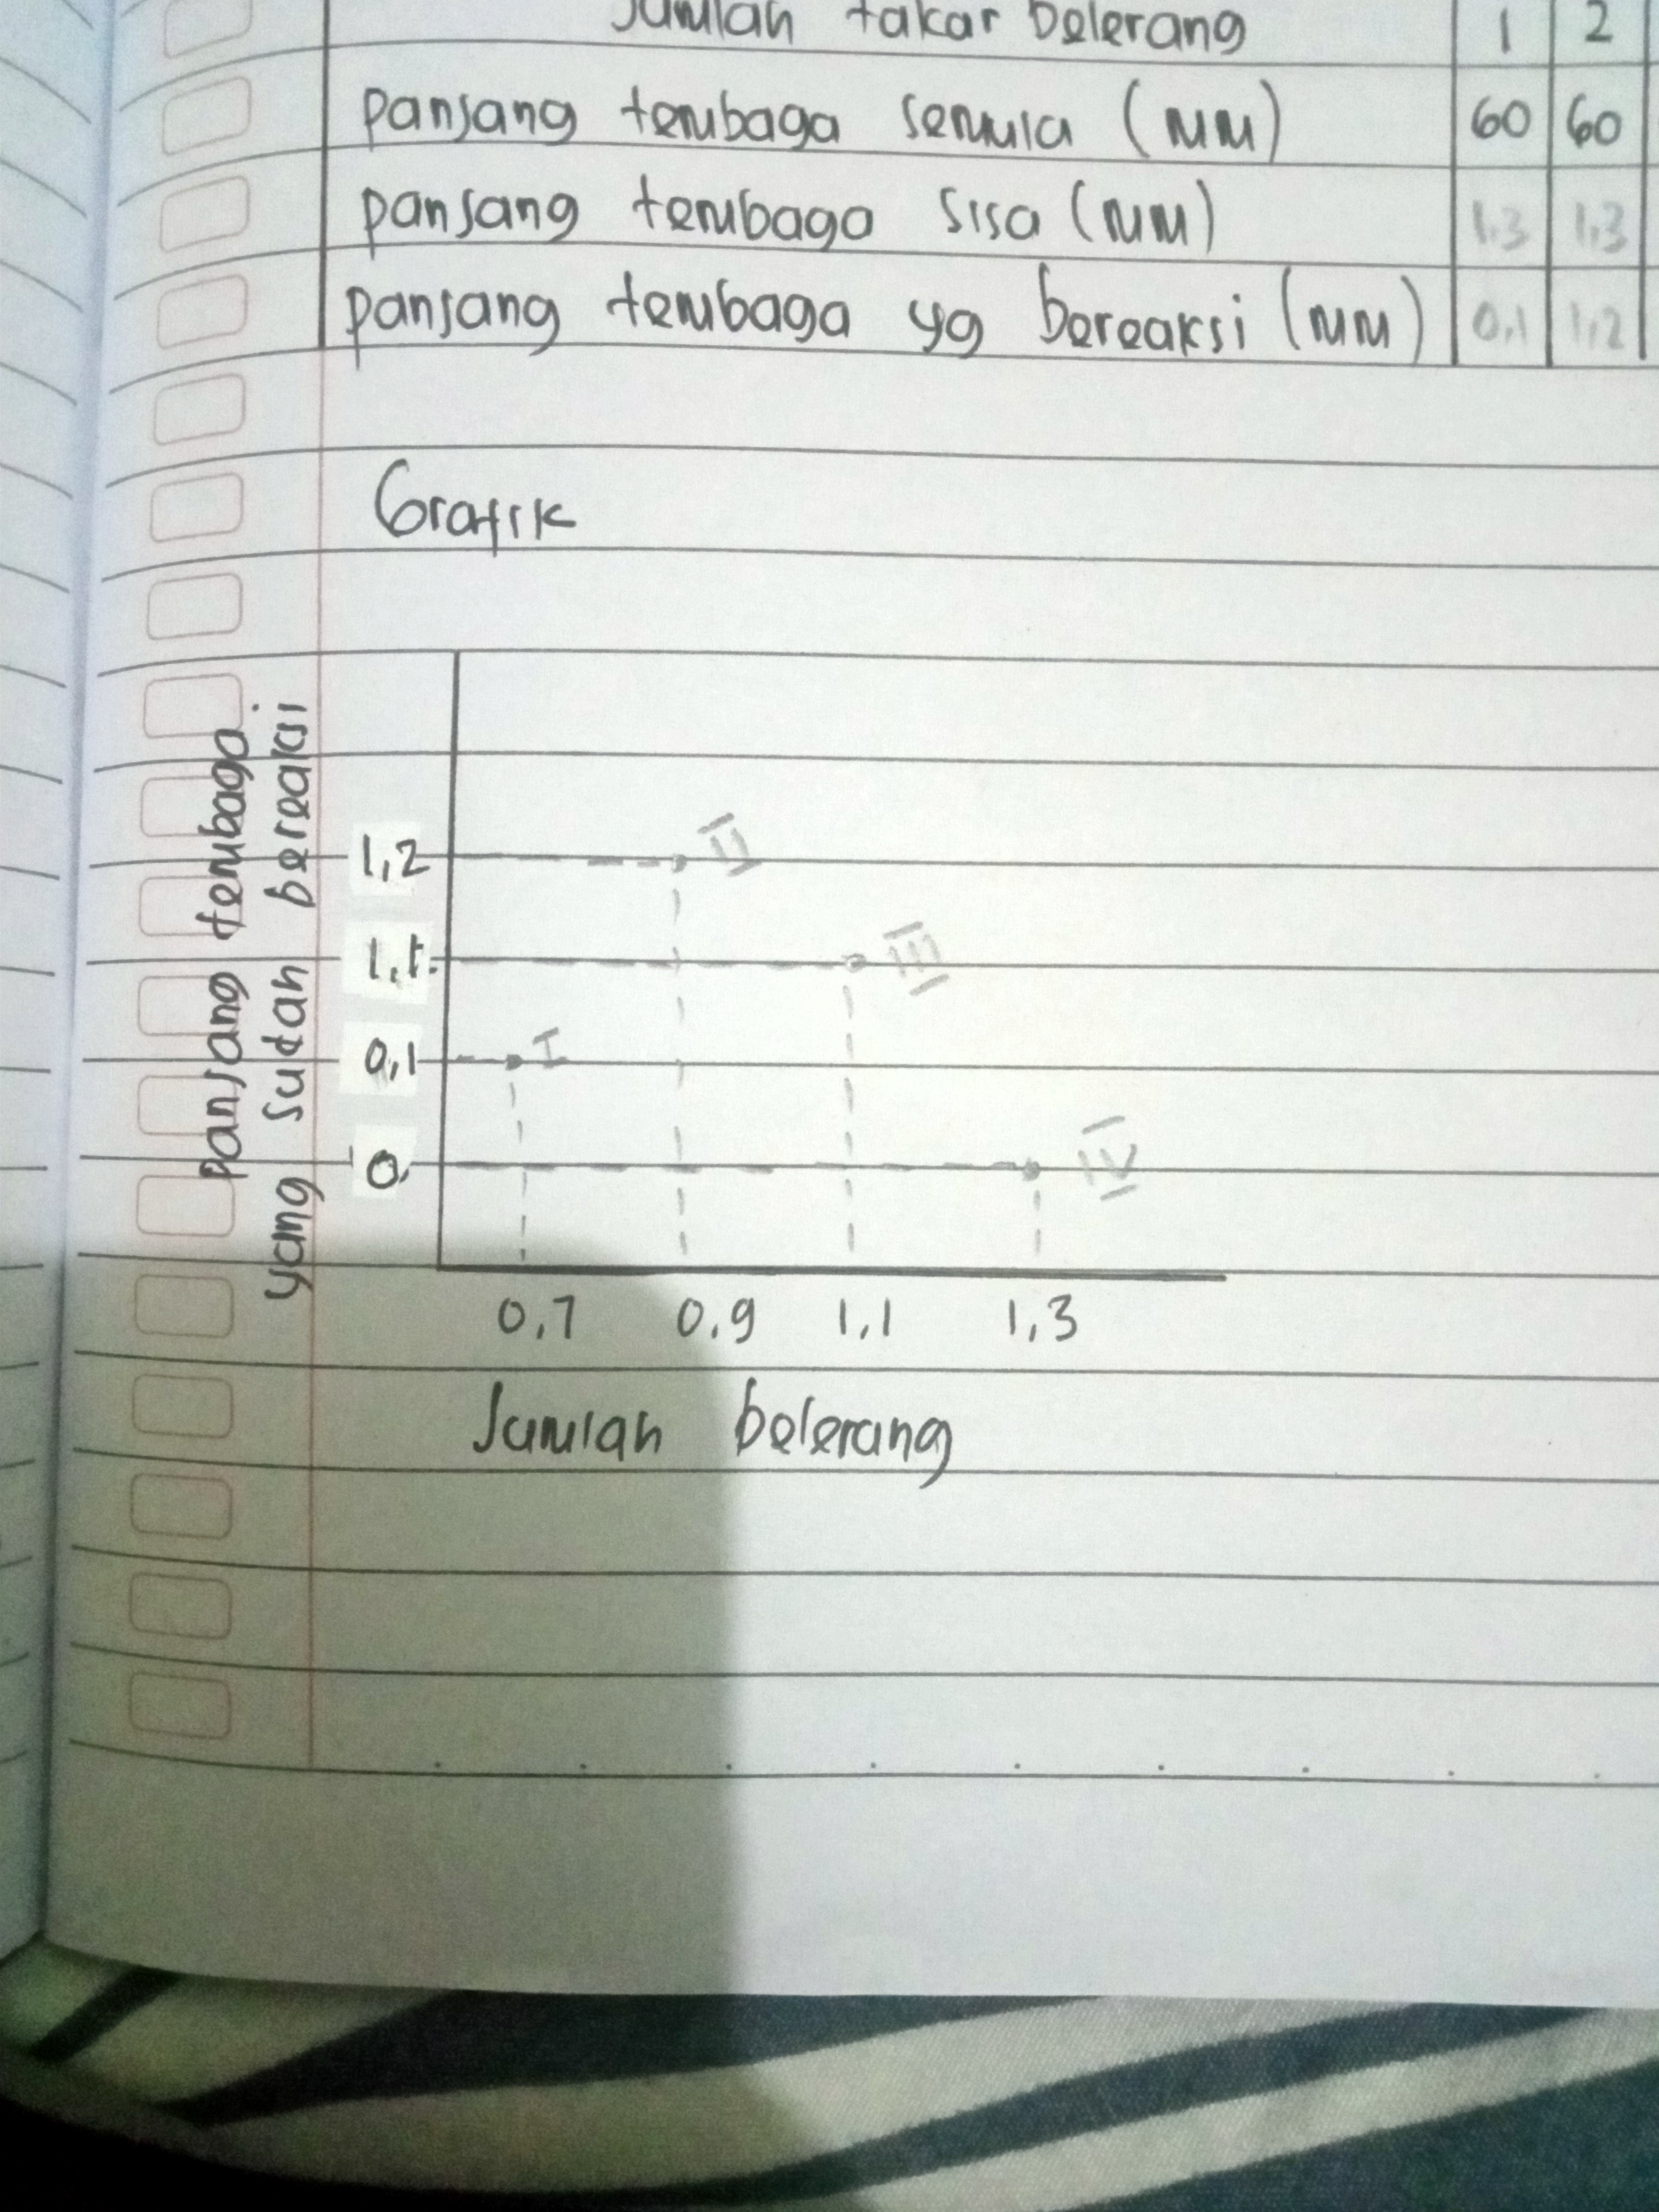 Jumlah takar belerang 1 2
panjang tembaga semula (mm) 60 60
panjang tembaga sisa (mm) 1,3 1,3
panjang tembaga yg bereaksi (mm) 0,1 1,2
Grafik
panjang tembaga
yang sudah bereaksi
1,2 II
1,1 III
0,1 I
0 IV
0,7 0,9 1,1 1,3
Jumlah belerang